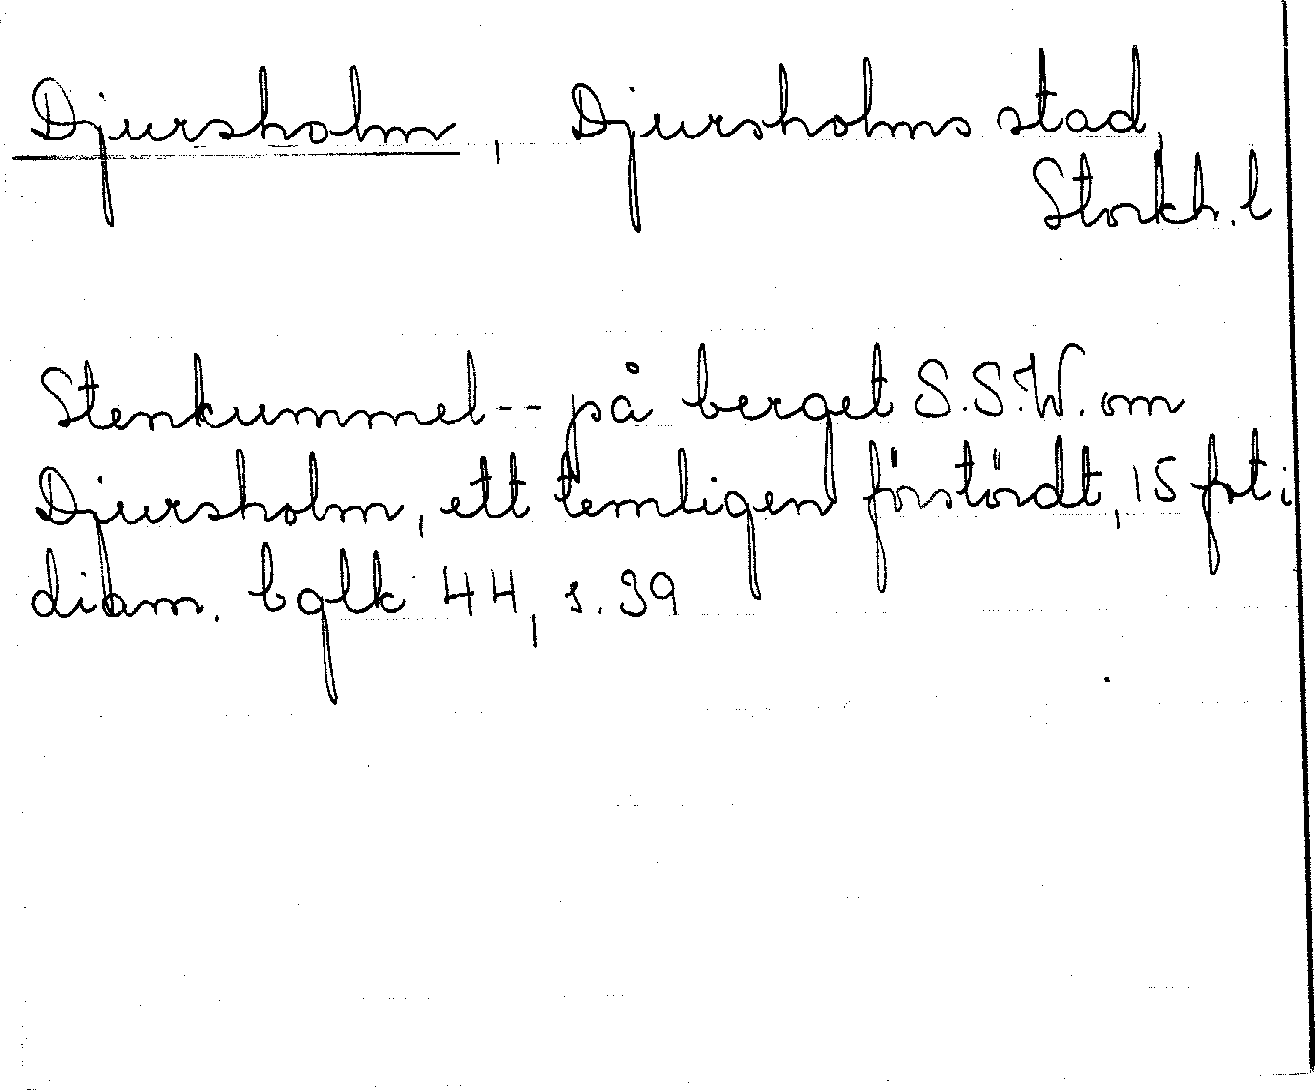 Djursholm, Djursholms stad,
Stockh. l
Stenkummel -- på berget S.S.W. om
Djursholm, ett temligen förstördt, 15 fot i
diam. bglk 44, s. 39